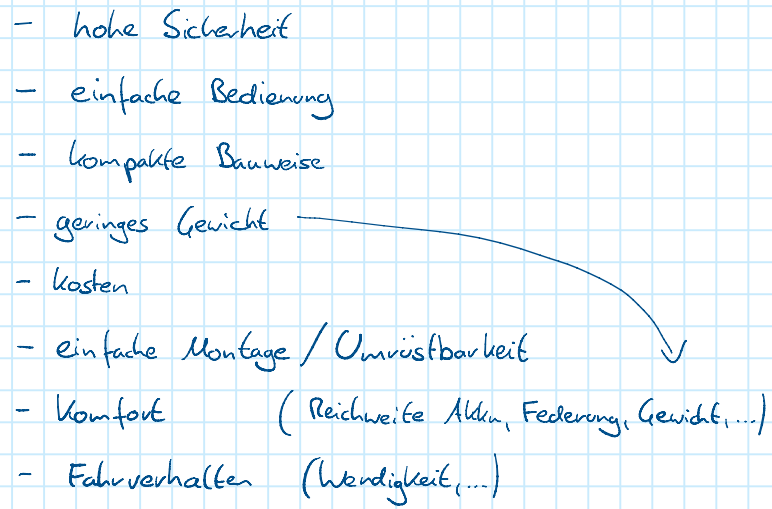 - hohe Sicherheit
- einfache Bedienung
- kompakte Bauweise
- geringes Gewicht
- Kosten
- einfache Montage / Umrüstbarkeit
- Komfort (Reichweite Akku, Federung, Gewicht, ...)
- Fahrverhalten (Wendigkeit, ...)